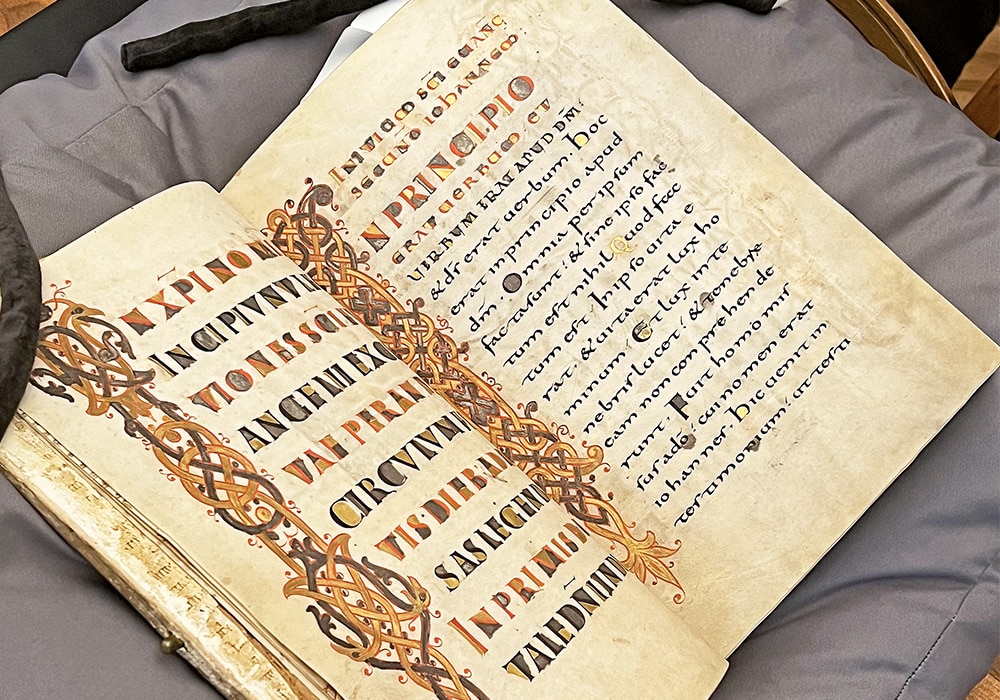 IN X̄PI NO
INCIPIUNT
TIONES SC̄I
ANGELII EXC
TAE PER AN
CIRCVM
TIS DIEBVS
SAS LEGEN
IN PRIMIS
NAT DN̄I
INITIUM SC̄I EUANG
SECUND̄ IOHANNEM
IN PRINCIPIO
ERAT UERBUM ET
UERBUM ERAT APUD DM̄.
& dſ erat uerbum. hoc
erat in principio apud
dm̄. Omnia per ipſum
facta ſunt. & ſine ipſo fac
tum eſt nihil. Quod fac
tum eſt. In ipſo uita e
rat. & uita erat lux ho
minum. Et lux in te
nebriſ lucet. & tenebrae
eam non comprehende
runt. Fuit homo miſ
ſuſ a dō. cui nomen erat
iohanneſ. hic uenit in
teſtimonium. ut teſti